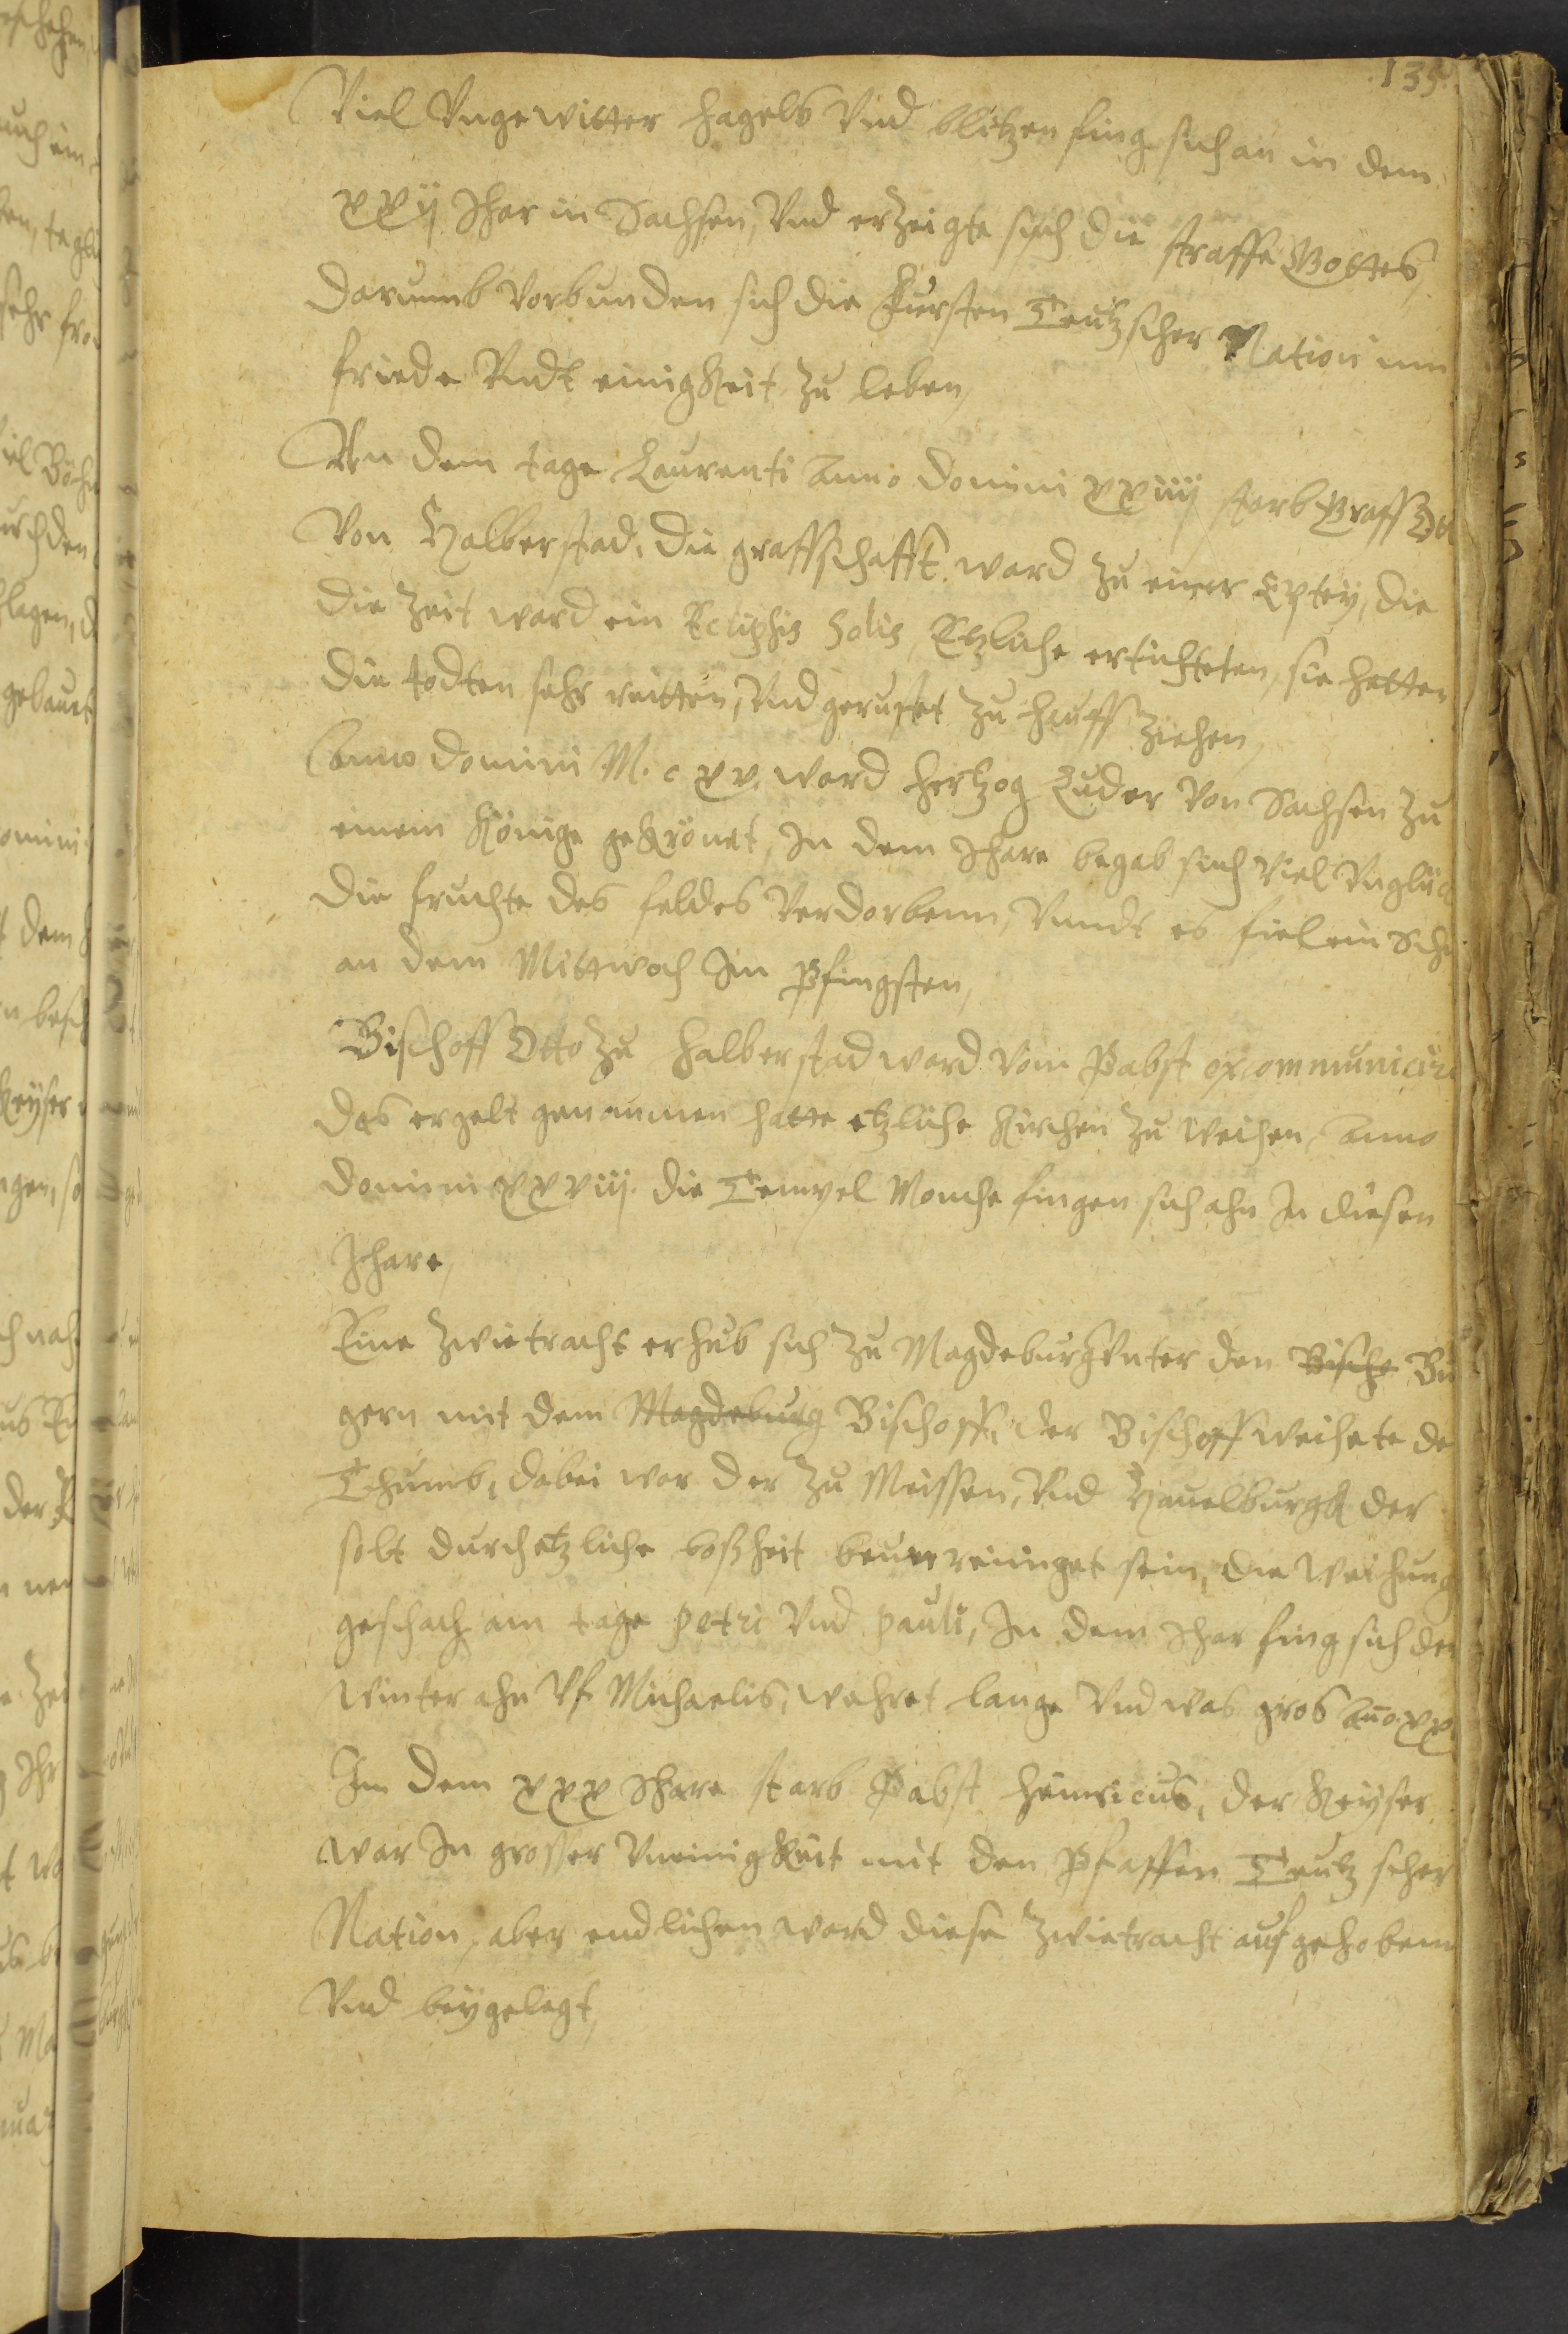 135.
Viel Vngewitter hagels Vnd blitzen fing sich an in dem
xxij Ihar in Sachssen, Vnd erzeigte sich die straffe Gottes,
darumb vorbunden sich die Fursten Teutzscher Nation inn
friede Vndt einigkeit zu leben,
An dem tage Laurenti Anno domini xxiiij starb Graff Ott
Von Halberstad, die graffschafft ward zu einer Eptey, die
die Zeit ward ein Ecliphis Solis, Etzliche ertichteten, sie hetten
die todten sehr reitten, Vnd gerustet zu hauff ziehen,
Anno domini M. c xv. ward hertzog Luder Von Sachssen zu
einem Könige gekrönet, In dem Ihare begab sich Viel Vnglück
die fruchte des feldes Verdorbenn, Vnndt es fiel ein Sch
an dem Mittwoch Im Pfingsten,
Bischoff Otto zu halberstad ward Vom Pabst excommunicir
das er gelt genommen hatte etzliche Kirchen zu Weihen, Anno
domini xxviij. die Tempel Monche fingen sich ahn In diesen
Ihare,
Eine zwietracht erhub sich zu Magdeburgk Vnter den Bische Bu
gern mit dem Magdeburg Bischoff, der Bischoff weihete de
Thumb, dabei war der zu Meissen, Vnd Hauelburgk der
solt durch etzliche boßheit beuerreiniget sein, die Weihung
geschach am tage petri Vnd pauli, In dem Ihar fing sich der
Winter ahn Vf Michaelis, wehret lange Vnd was gros Ano. xx
Im dem xxx Ihare starb Pabst Heinricus, der Keyser
war In grosser Vneinigkeit mit den Pfaffen Teutzscher
Nation, aber endlichen ward diese zwietracht aufgehobenn
Vnd beygelegt,